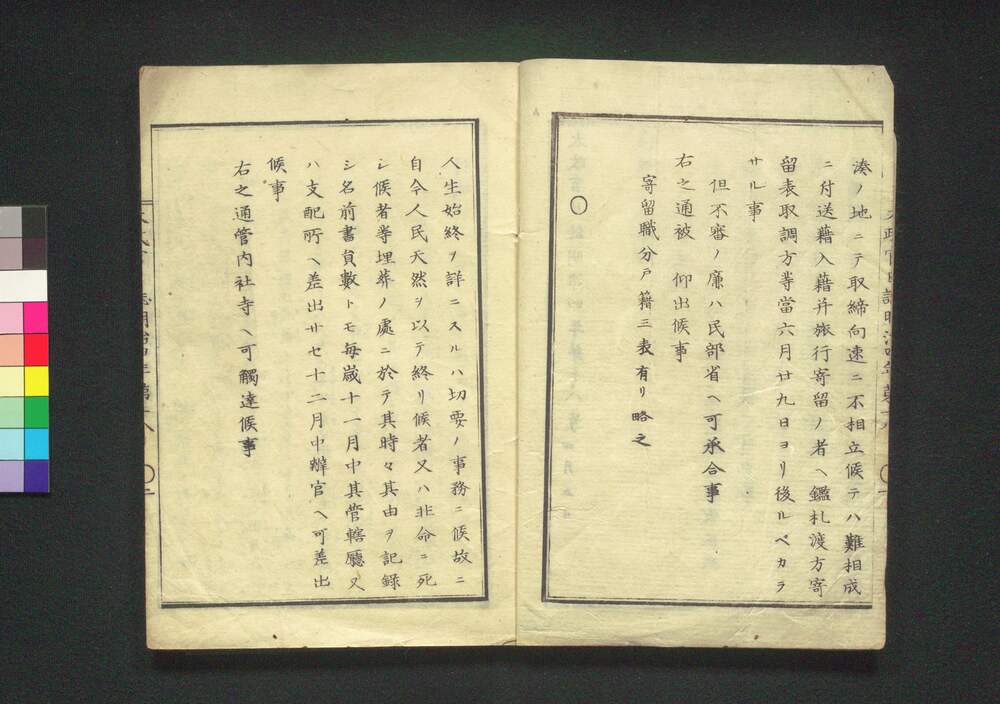 湊ノ地ニテ取締向速ニ不相立候テハ難相成
ニ付送籍入籍幷旅行寄留ノ者ヘ鑑札渡方寄
留表取調方等當六月廿九日ヨリ後ルベカラ
サル事
但不審ノ廉ハ民部省ヘ可承合事
右之通被 仰出候事
寄留職分戸籍三表有リ略之
〇
人生始終ヲ詳ニスルハ切要ノ事務ニ候故ニ
自今人民天然ヲ以テ終リ候者又ハ非命ニ死
シ候者等埋葬ノ處ニ於テ其時々其由ヲ記録
シ名前書員數トモ每歳十一月中其管轄廳又
ハ支配所ヘ差出サセ十二月中辨官ヘ可差出
候事
右之通管內社寺ヘ可觸達候事